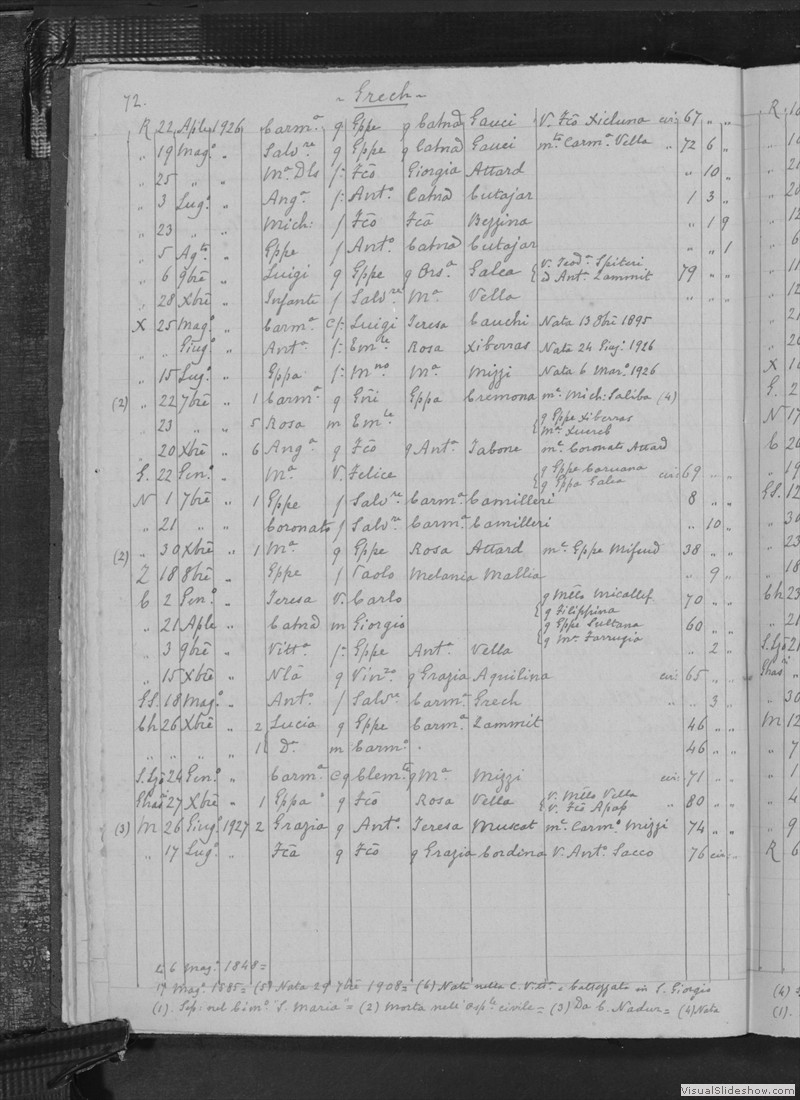 72.
~ Grech ~
R 22 Aple 1926 Carmª g Eppe g Catnã Gauci V. Fcõ Xicluna cir: 67 „ „
„ 19 Magº „ Salvre g Eppe g Catnã Gauci mta Carmº Vella „ 72 6 „
„ 25 „ „ Mª Dls f: Fcõ Giorgia Attard „ 10 „
„ 3 Lugº „ Angª f: Antº Catnã Cutajar 1 3 „
„ 23 „ „ Mich: f Fcõ Fcã Bezzina „ 1 9
„ 5 Agto „ Eppe f Antº Catnã Cutajar „ „ 1
„ 6 9brē „ Luigi g Eppe g Orsª Galea V. Teodª Spiteri D Antª Zammit 79 „ „
„ 28 Xbrē „ Infante f Salvre Mª Vella „ „ „
X 25 Magº „ Carmª C f: Luigi Teresa Cauchi Nata 13 8bre 1895
„ „ Giugº „ Antª f: Emle Rosa Xiberras Nata 24 Giugº 1926
„ 15 Lugº „ Eppa f: Mno Mª Mizzi Nata 6 Marº 1926
(2) „ 22 7brē „ 1 Carmª g Gñi Eppa Cremona mª Mich: Saliba (4)
„ 23 „ „ 5 Rosa m Emle g Eppe Xiberras Mª Xuereb
„ 20 Xbrē „ 6 Angª g Fcõ g Antª Tabone mª Coronato Attard
G. 22 Genº „ Mª V. Felice g Eppe Caruana g Eppa Galea cir: 69 „ „
N 1 7brē „ 1 Eppe f Salvre Carmª Camilleri 8 „ „
„ 21 „ „ Coronato f Salvre Carmª Camilleri „ 10 „
(2) „ 30 Xbrē „ 1 Mª g Eppe Rosa Attard mª Eppe Mifsud 38 „ „
Z 18 8brē „ Eppe f Paolo Melania Mallia „ 9 „
C 2 Genº „ Teresa V. Carlo g Mtēo Micallef g Filippina 70 „ „
„ 21 Aple „ Catnã m Giorgio g Eppe Sultana g Mª Farrugia 60 „ „
„ 3 9brē „ Vittª f: Eppe Antª Vella „ 2 „
„ 15 Xbrē „ Nlã g Vinzº g Grazia Aquilina cir: 65 „ „
SS. 18 Magº „ Antº f Salvre Carmª Grech „ „ 3 „
Ch 26 Xbrē „ 2 Lucia g Eppe Carmª Zammit 46 „ „
„ „ „ „ 1 Dª m Carmº 46 „ „
S.Lzõ 24 Genº „ Carmª C g Clemte g Mª Mizzi cir: 71 „ „
Ghas 27 Xbrē „ 1 Eppa g Fcõ Rosa Vella V. Mtēo Vella V. Fcõ Apap „ 80 „ „
(3) M 26 Giugº 1927 2 Grazia g Antº Teresa Muscat mª Carmº Mizzi 74 „ „
„ 17 Lugº „ Fcã g Fcõ g Grazia Cordina V. Antº Sacco 76 cir „
li 6 Magº 1848=
17 Magº 1885= (5) Nata 29 7bre 1908= (6) Nata nella C. Vitta. e battezzata in S. Giorgio
(1). Sep: nel Cimº S. Maria = (2) Morta nell' osple civile = (3) Da C. Nadur = (4) Nata
VisualSlideshow.com